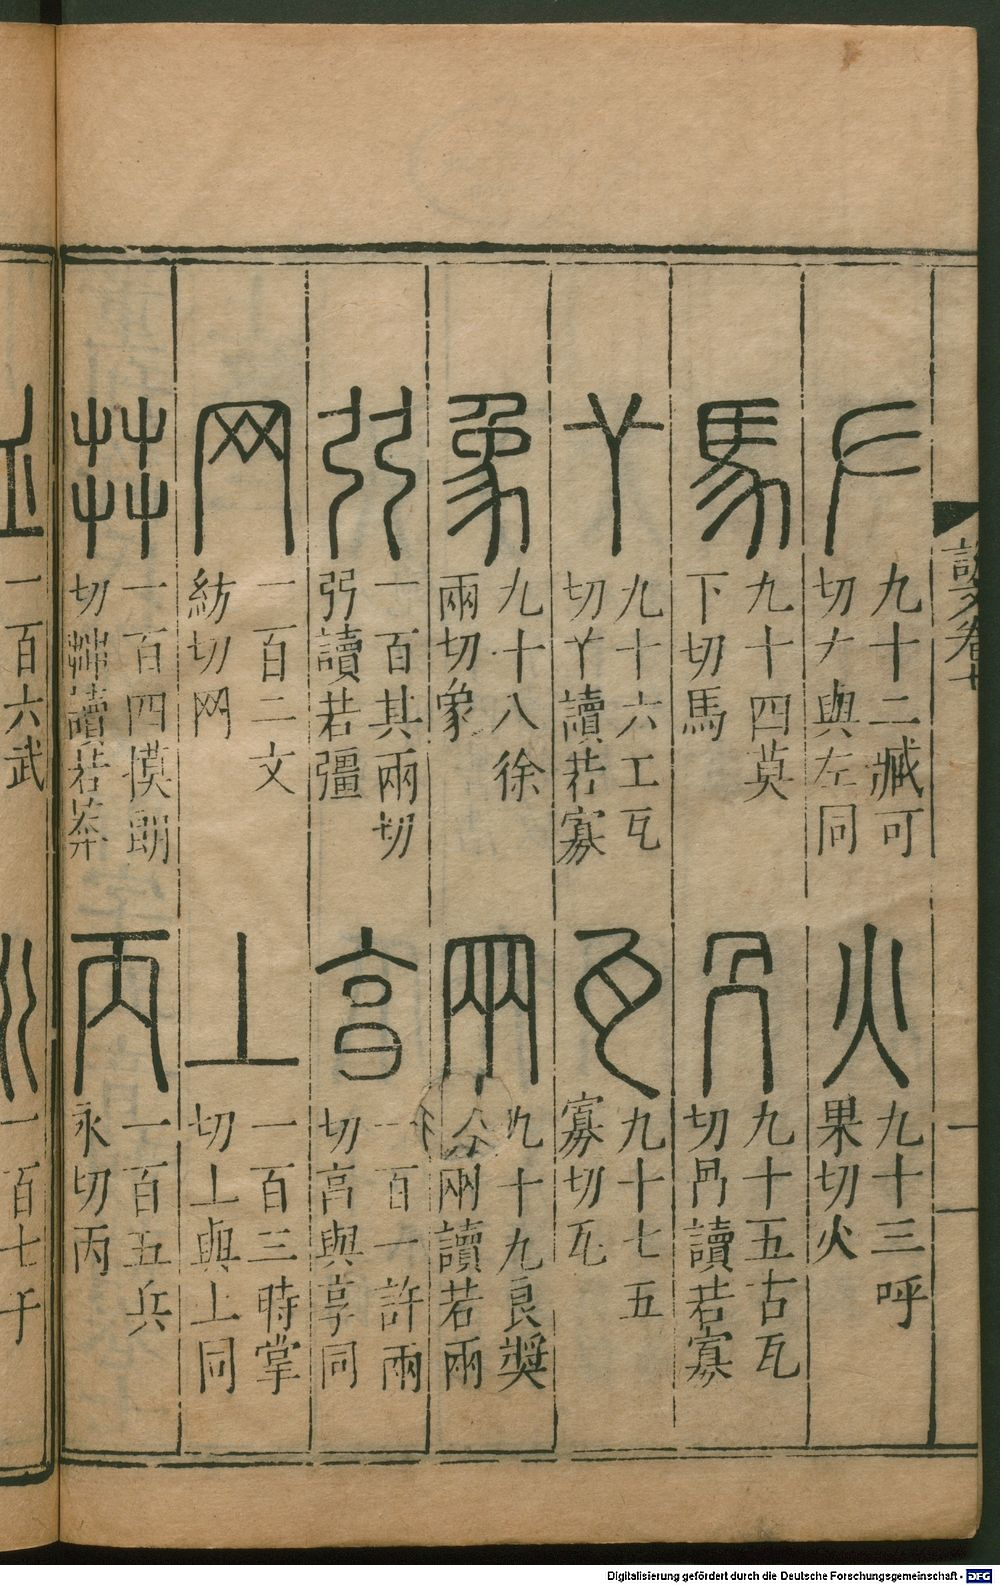 說文卷七
九十二臧可
切𠂇與左同
九十三呼
果切火
九十四莫
下切馬
九十五古瓦
切冎讀若寡
九十六工瓦
切𦫳讀若寡
九十七五
寡切瓦
九十八徐
兩切象
九十九良獎
切㒳讀若兩
一百其兩切
弜讀若彊
一百一許兩
切亯與享同
一百二文
紡切网
一百三時掌
切丄與上同
一百四模朗
切茻讀若莽
一百五兵
永切丙
一百六武
一百七于
Digitalisierung gefördert durch die Deutsche Forschungsgemeinschaft - DFG